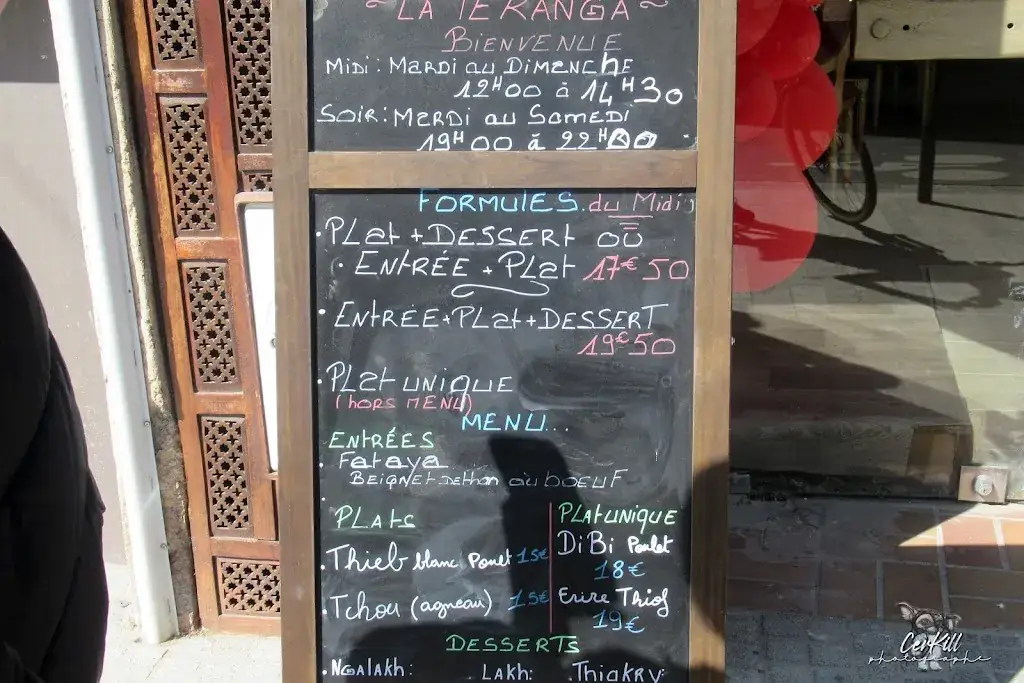 ~LA TERANGA~
BIENVENUE
MIDI: MARDI au DIMENChE
12H00 à 14H30
SOIR: MERDI au SAMEDI
19H00 à 22H00
FORMULES du Midi
• PLat + DESSERt OU
• ENtRÉE + PLat 17€50
• ENtRÉE + PLat + DESSERT
19€50
• PLat UNIQUE
(hORS MENU)
MENU...
ENtRÉES
• Fataya
BEIGNEt Dethon ou BOEUF
PLAtS
PLAtUNIQUE
• Thieb blanc Poulet 15€
DiBi Poulet
18€
• Tchou (agneau) 15€
Thiof
19€
DESSERtS
• NGALAKh: . LAKh: . ThiaKRY:
CerKill
photographe